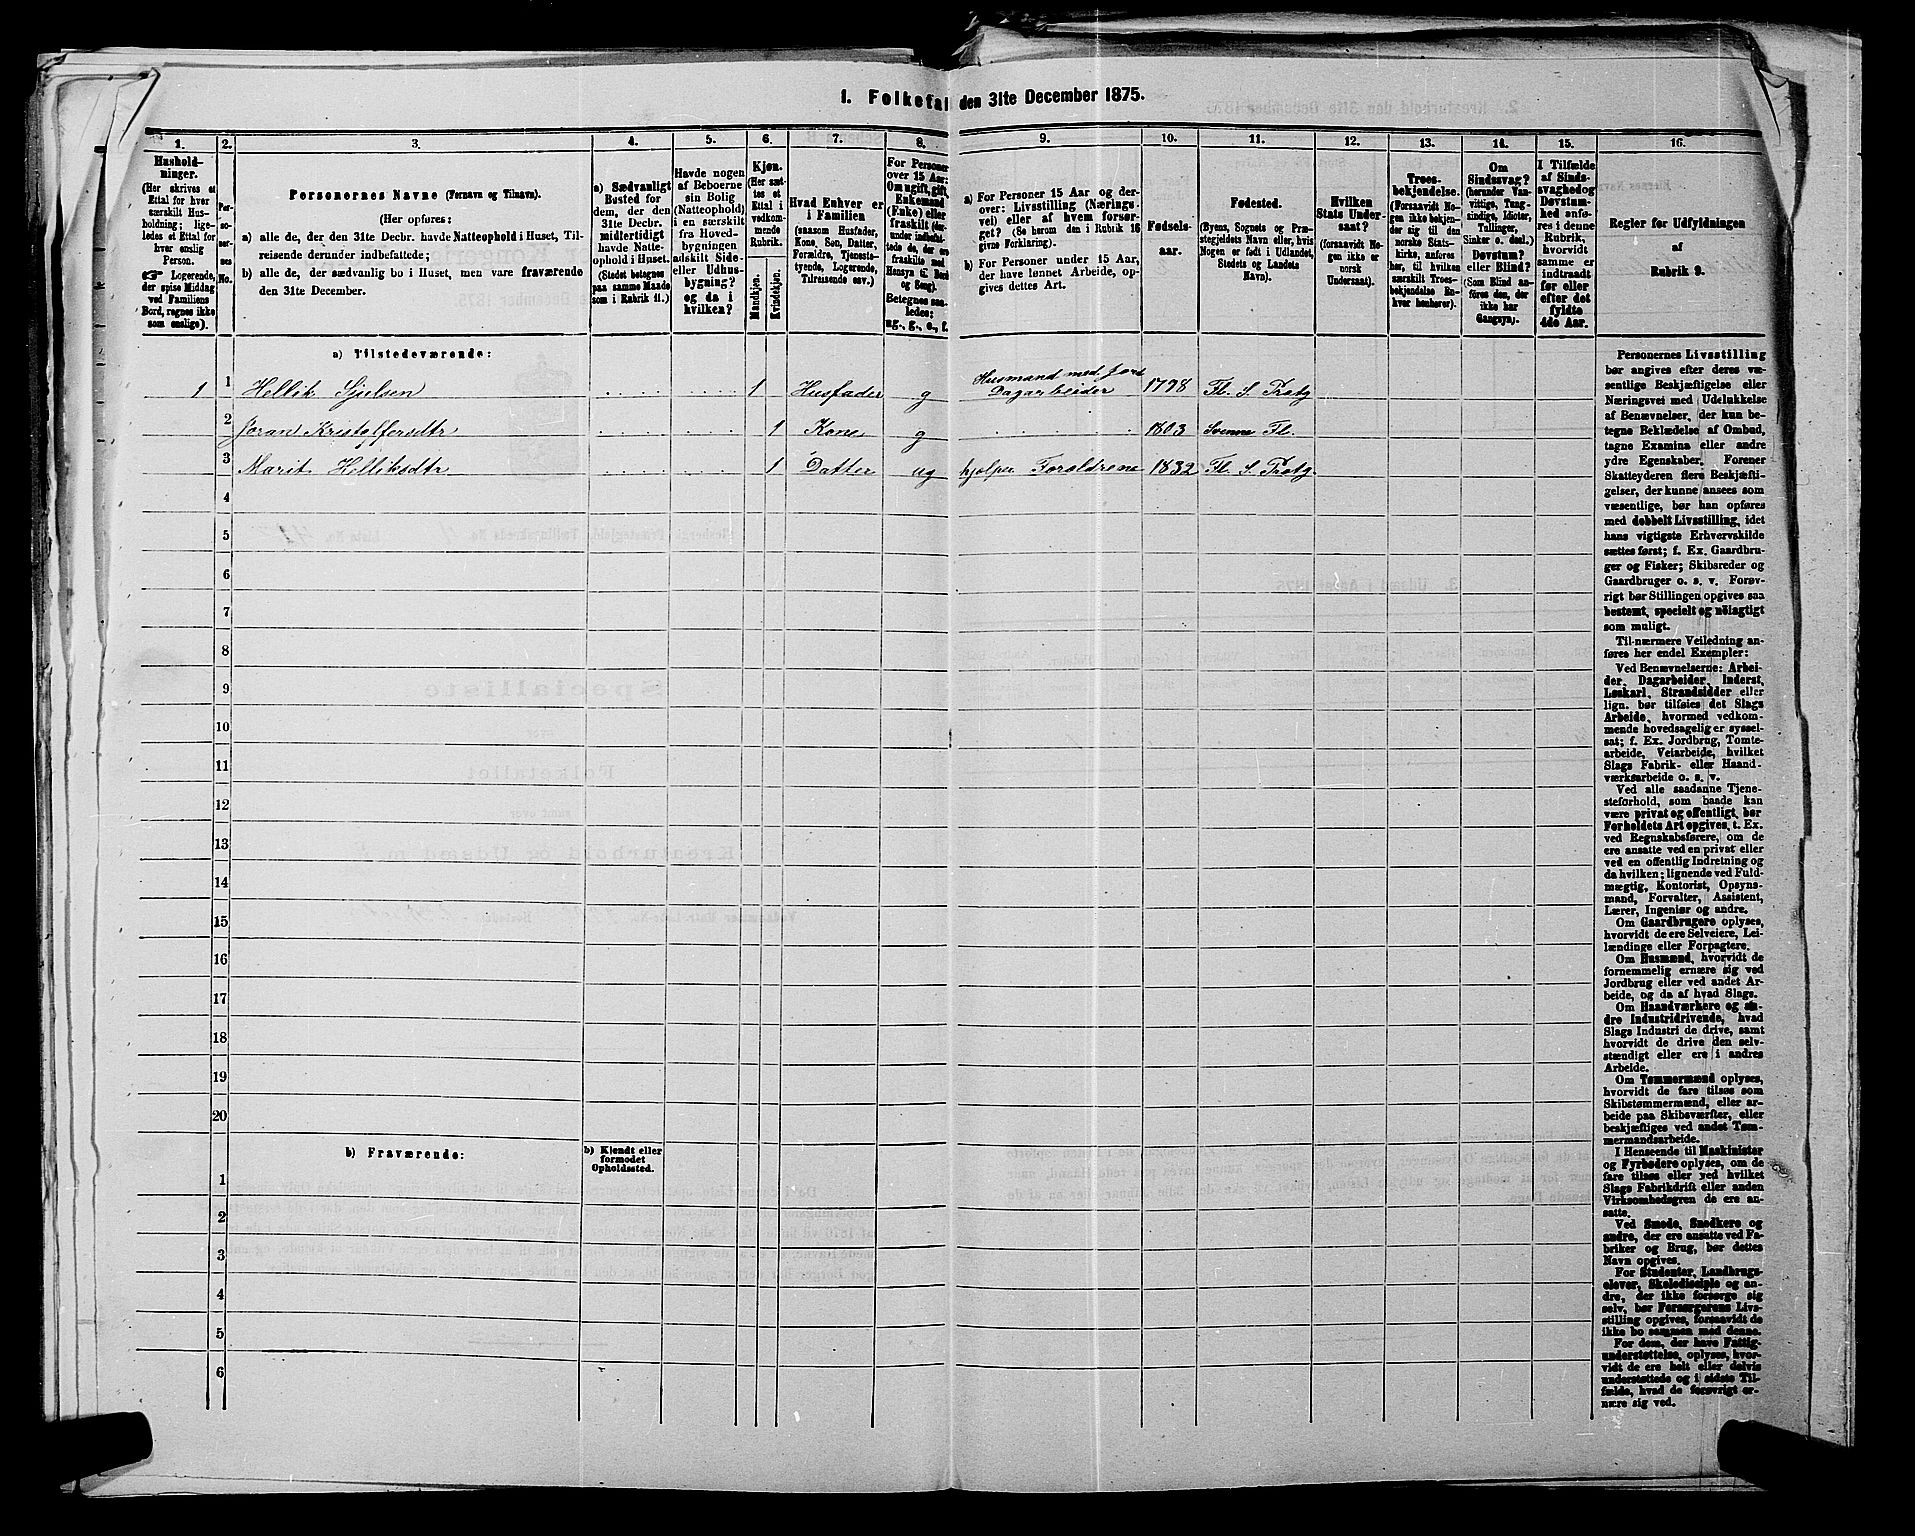 1. Folketal den 31te December 1875.
1. 2. 3. 4. 5. 6. 7. 8. 9. 10. 11. 12. 13. 14. 15. 16.
Hushold-
ninger.
(Her skrives et
Ettal for hver
særskilt Hus-
holdning; lige-
ledes et Ettal for
hver enslig
Person.
☞ Logerende,
der spise Middag
ved Familiens
Bord, regnes ikke
som enslige).
Per-
so-
ner-
nes
No.
Personernes Navne (Fornavn og Tilnavn).
(Her opføres:
a) alle de, der den 31te Decbr. havde Natteophold i Huset, Til-
reisende derunder indbefattede;
b) alle de, der sædvanlig bo i Huset, men vare fraværende
den 31te December.
a) Sædvanligt
Bosted for
dem, der den
31te Decbr.
midtertidigt
havde Natte-
ophold i Huset.
(Stedet betegnes
paa samme Maade
som i Rubrik 11.)
Havde nogen
af Beboerne
sin Bolig
(Natteophold)
i en særskilt
fra Hoved-
bygningen
adskilt Side-
eller Udhus-
bygning?
og da i
hvilken?
Kjøn.
(Her sæt-
tes et
Ettal i
vedkom-
mende
Rubrik.
Mandkjøn.
Kvindekjøn.
Hvad Enhver er
i Familien
(saasom Husfader,
Kone, Søn, Datter,
Forældre, Tjeneste-
tyende, Logerende,
Tilreisende osv.)
For Personer
over 15 Aar:
Om ugift, gift,
Enkemand
(Enke) eller
fraskilt (der-
under indbefat-
tede de, der ere
fraskilte med
Hensyn til Bord
og Seng).
Betegnes saa-
ledes:
ug., g., e., f.
a) For Personer 15 Aar og der-
over: Livsstilling (Nærings-
vei) eller af hvem forsør-
get? (Se herom den i Rubrik 16
givne Forklaring).
b) For Personer under 15 Aar,
der have lønnet Arbeide, op-
gives dettes Art.
Fødsels-
aar.
Fødested.
(Byens, Sognets og Præ-
stegjeldets Navn eller, hvis
Nogen er født i Udlandet,
Stedets og Landets
Navn).
Hvilken
Stats Under-
saat?
(forsaavidt No-
gen ikke er
norsk
Undersaat).
Troes-
bekjendelse.
(Forsaavidt No-
gen ikke bekjen-
der sig til den
norske Stats-
kirke, anføres
her, til hvilken
særskilt Troes-
bekjendelse En-
hver henhører).
Om
Sindssvag?
(herunder Van-
vittige, Tung-
sindige, Idioter,
Tullinger,
Sinker o. desl.).
Døvstum?
eller Blind?
(Som Blind an-
føres den, der
ikke har
Gangsyn).
I Tilfælde
af Sinds-
svaghed og
Døvstum-
hed anfø-
res i denne
Rubrik,
hvorvidt
samme er
indtraadt
før eller
efter det
fyldte
4de Aar.
Regler for Udfyldningen
af
Rubrik 9.
a) Tilstedeværende:
1 1 Hellik Gjulsen 1 Husfader g Husmand med Jord Dagarbeider 1798 Fl. S. Trøtg.
2 Joran Kristoffersdtr 1 Kone g 1803 Svenne Fl.
3 Marit Helliksdtr 1 Datter ug hjelper Foreldrene 1832 Fl. S. Trøtg.
4
5
6
7
8
9
10
11
12
13
14
15
16
17
18
19
20
b) Fraværende:
b) Kjendt eller
formodet
Opholdssted.
1
2
3
4
5
6
Personernes Livsstilling
bør angives efter deres væ-
sentlige Beskjæftigelse eller
Næringsvei med Udelukkelse
af Benævnelser, der kun be-
tegne Beklædelse af Ombud,
tagne Examina eller andre
ydre Egenskaber. Forener
Skatteyderen flere Beskjæfti-
gelser, der kunne ansees som
væsentlige, bør han opføres
med dobbelt Livsstilling, idet
hans vigtigste Erhvervskilde
sættes først; f. Ex. Gaardbru-
ger og Fisker; Skibsreder og
Gaardbruger o. s. v. Forøv-
rigt bør Stillingen opgives saa
bestemt, specielt og nøiagtigt
som muligt.
Til nærmere Veiledning an-
føres her endel Exempler:
Ved Benævnelserne: Arbei-
der, Dagarbeider, Inderst,
Løskarl, Strandsidder eller
lign. bør tilføies det Slags
Arbeide, hvormed vedkom-
mende hovedsagelig er syssel-
sat; f. Ex. Jordbrug, Tomte-
arbeide, Veiarbeide, hvilket
Slags Fabrik- eller Haand-
værksarbeide o. s. v.
Ved alle saadanne Tjene-
steforhold, som baade kan
være privat og offentligt, bør
Forholdets Art opgives, t. Ex.
ved Regnskabsførere, om de
ere ansatte ved en privat eller
ved en offentlig Indretning og
da hvilken; lignende ved Fuld-
mægtig, Kontorist, Opsyns-
mand, Forvalter, Assistent,
Lærer, Ingeniør og andre.
Om Gaardbrugere oplyses,
hvorvidt de ere Selveiere, Lei-
lændinge eller Forpagtere.
Om Husmænd, hvorvidt de
fornemmelig ernære sig ved
Jordbrug eller ved andet Ar-
beide, og da af hvad Slags.
Om Haandværkere og an-
dre Industridrivende, hvad
Slags Industri de drive, samt
hvorvidt de drive den selv-
stændigt eller ere i andres
Arbeide.
Om Tømmermænd oplyses,
hvorvidt de fare tilsøs som
Skibstømmermænd, eller ar-
beide paa Skibsværfter, eller
beskjæftiges ved andet Tøm-
mermandsarbeide.
I Henseende til Maskinister
og Fyrbødere oplyses, om de
fare tilsøs eller ved hvilket
Slags Fabrikdrift eller anden
Virksomhedsgren de ere an-
satte.
Ved Smede, Snedkere og
andre, der ere ansatte ved Fa-
briker og Brug, bør dettes
Navn opgives.
For Studenter, Landbrugs-
elever, Skoledisciple og an-
dre, der ikke forsørge sig
selv, bør Forsørgerens Livs-
stilling opgives, forsaavidt de
ikke bo sammen med denne.
For dem, der have Fattig-
understøttelse, oplyses, hvor-
vidt de ere helt eller delvis
understøttede og i sidste Til-
fælde, hvad de forøvrigt er-
nære sig ved.